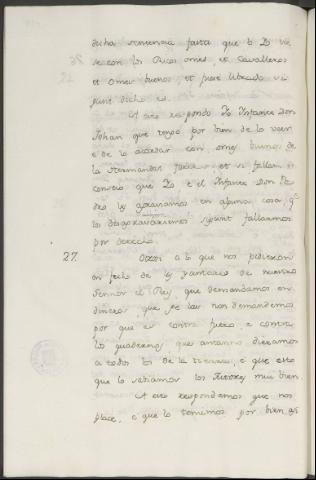 dicha sentencia fasta que lo Yo vie
se con los Ricos omes, et Cavalleros
et Omes buenos, et fuese librado se
gunt dicho es.
A esto respondo Yo Infante Don
Johan que tengo por bien de lo veer
e de lo acordar con omes buenos de
la Hermandat
conceio que Yo e el Infante Don Pe
dro los agraviamos en alguna cosa, q.
lo desagraviaremos segunt fallarmos
por derecho.
27. Otrosi a lo que nos pidieron
en fecho de los yantares de nuestro
Sennor el Rey, que demandamos en
dineros, que se las non demandemos
por que es contra fuero, e contra
los quadernos, que antanno dieramos
a todos los de la tierra, e que esto
que lo sabiamos los Tutores mui bien.
A esto respondemos que nos
place, e que lo tenemos por bien q.